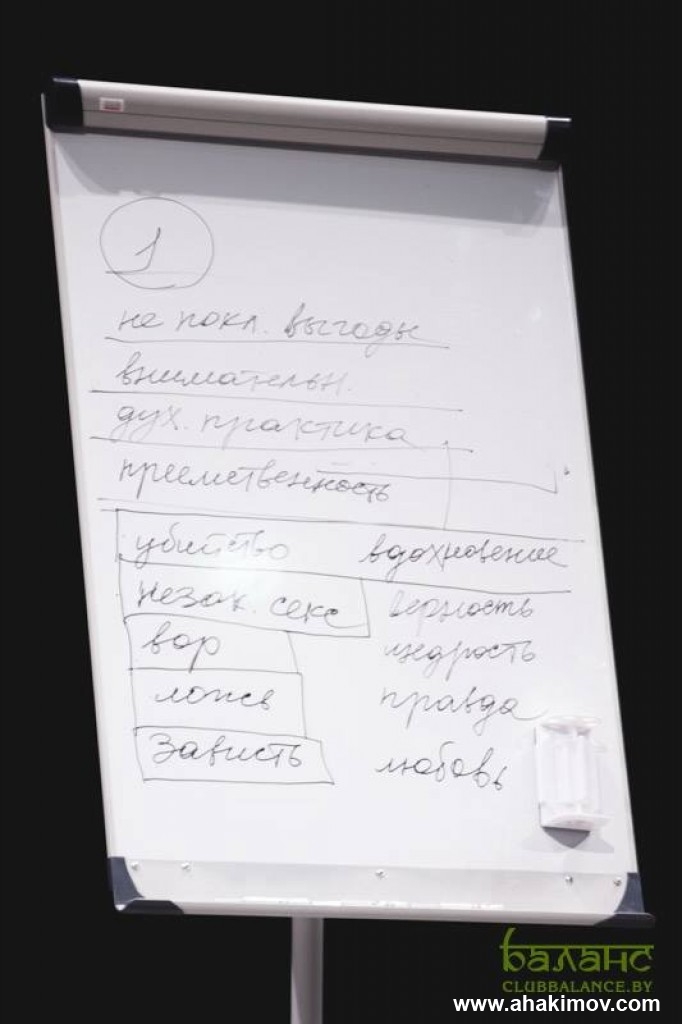 1
не покл. выгоды
внимательн.
дух. практика
преемственность
убийство вдохновение
незак. секс верность
вор щедрость
ложь правда
зависть любовь
баланс
CLUBBALANCE.BY
www.ahakimov.com